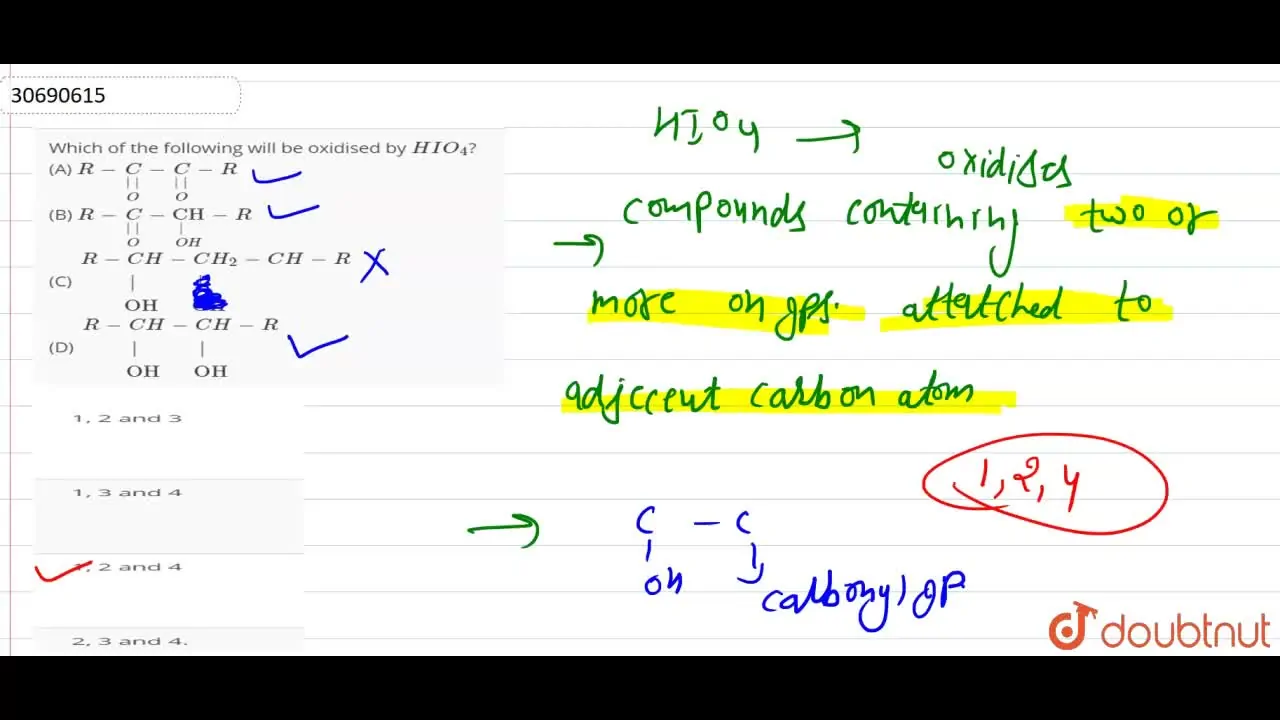 30690615
Which of the following will be oxidised by HIO4?
(A) R − C − C − R
|| ||
O O
(B) R − C − CH − R
|| |
O OH
R − CH − CH2 − CH − R
(C) |
OH
R − CH − CH − R
(D) | |
OH OH
1, 2 and 3
1, 3 and 4
1, 2 and 4
2, 3 and 4.
HIO4 →
oxidises
compounds containing two or
→
more OH gps. attatched to
adjccent carbon atom
1, 2, 4
→ C − C
OH carbonyl gp
doubtnut